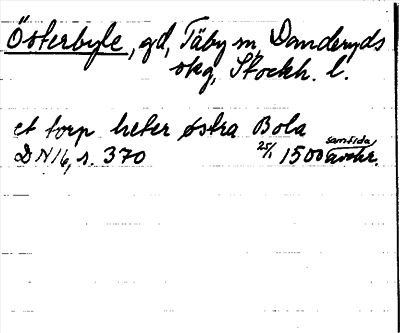 Österbyle, gd, Täby sn, Danderyds
skg, Stockh. l.
et torp heter østra Bola
DN 16, s. 370 25/1 1500 samtida avskr.